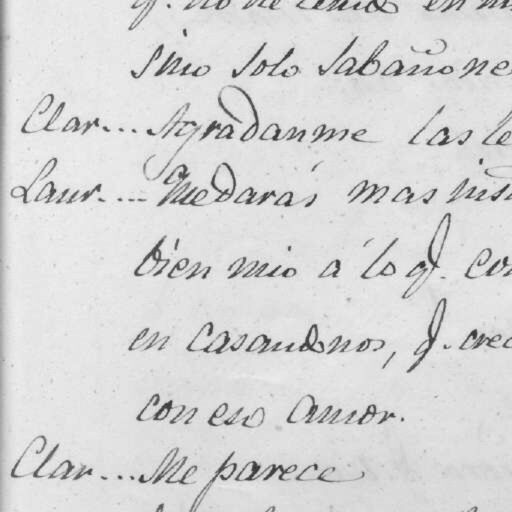 q. no he tenido en m
sino solo sabañone
Clar... Agradanme las le
Laur.... Quedarás mas
bien mio á lo q. co
en casandonos, q. crec
con eso amor.
Clar... Me parece